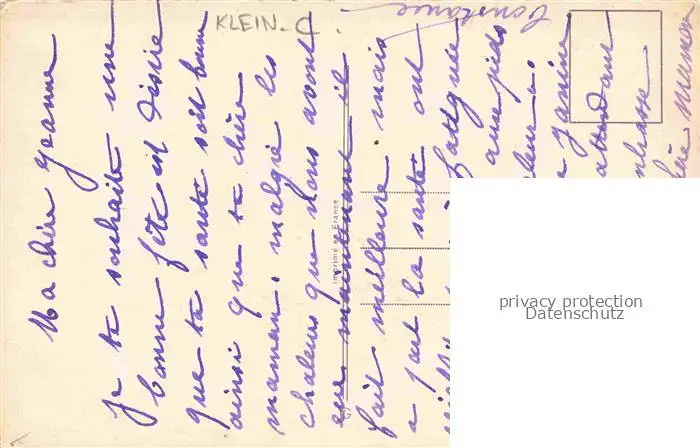 Ma chère Jeanne
je te souhaite une
bonne fête et désire
que ta santé soit bonne
ainsi que ta chère
maman. malgré les
chaleurs que nous avons
eue maintenant il
fait meilleure mais
a part la santé ont
fatiguée
aux pieds
Janine
attendant
Maman
Constance
KLEIN-C.
Imprimé en France
privacy protection
Datenschutz